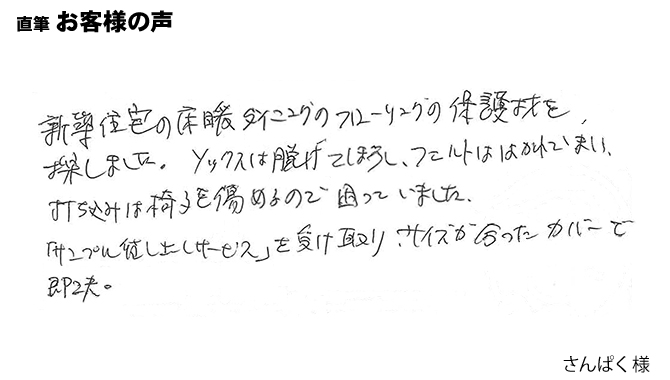 直筆 お客様の声
新築住宅の床暖ダイニングのフローリングの保護材を、
探しました。ソックスは脱げてしまうし、フェルトははがれてしまい、
打ち込みは椅子を傷めるので困っていました。
「サンプル貸し出しサービス」を受け取り、サイズが合ったカバーで
即決。
さんぱく様